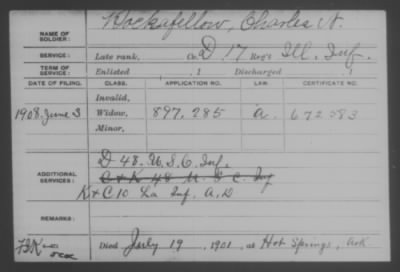 NAME OF SOLDIER: Hockafellow, Charles N.
SERVICE: Late rank, Co. D 17 Reg't Ill. Inf.
TERM OF SERVICE: Enlisted , 1 Discharged , 1
DATE OF FILING. CLASS. APPLICATION NO. LAW. CERTIFICATE NO.
Invalid,
1908 June 3 Widow, 897,285 a. 672583
Minor,
D 48. U.S.C. Inf.
ADDITIONAL SERVICES: C & K 48 U. S. C. Inf
K & C 10 La Inf. A. D
REMARKS:
Died July 19, 1901, at Hot Springs, Ark